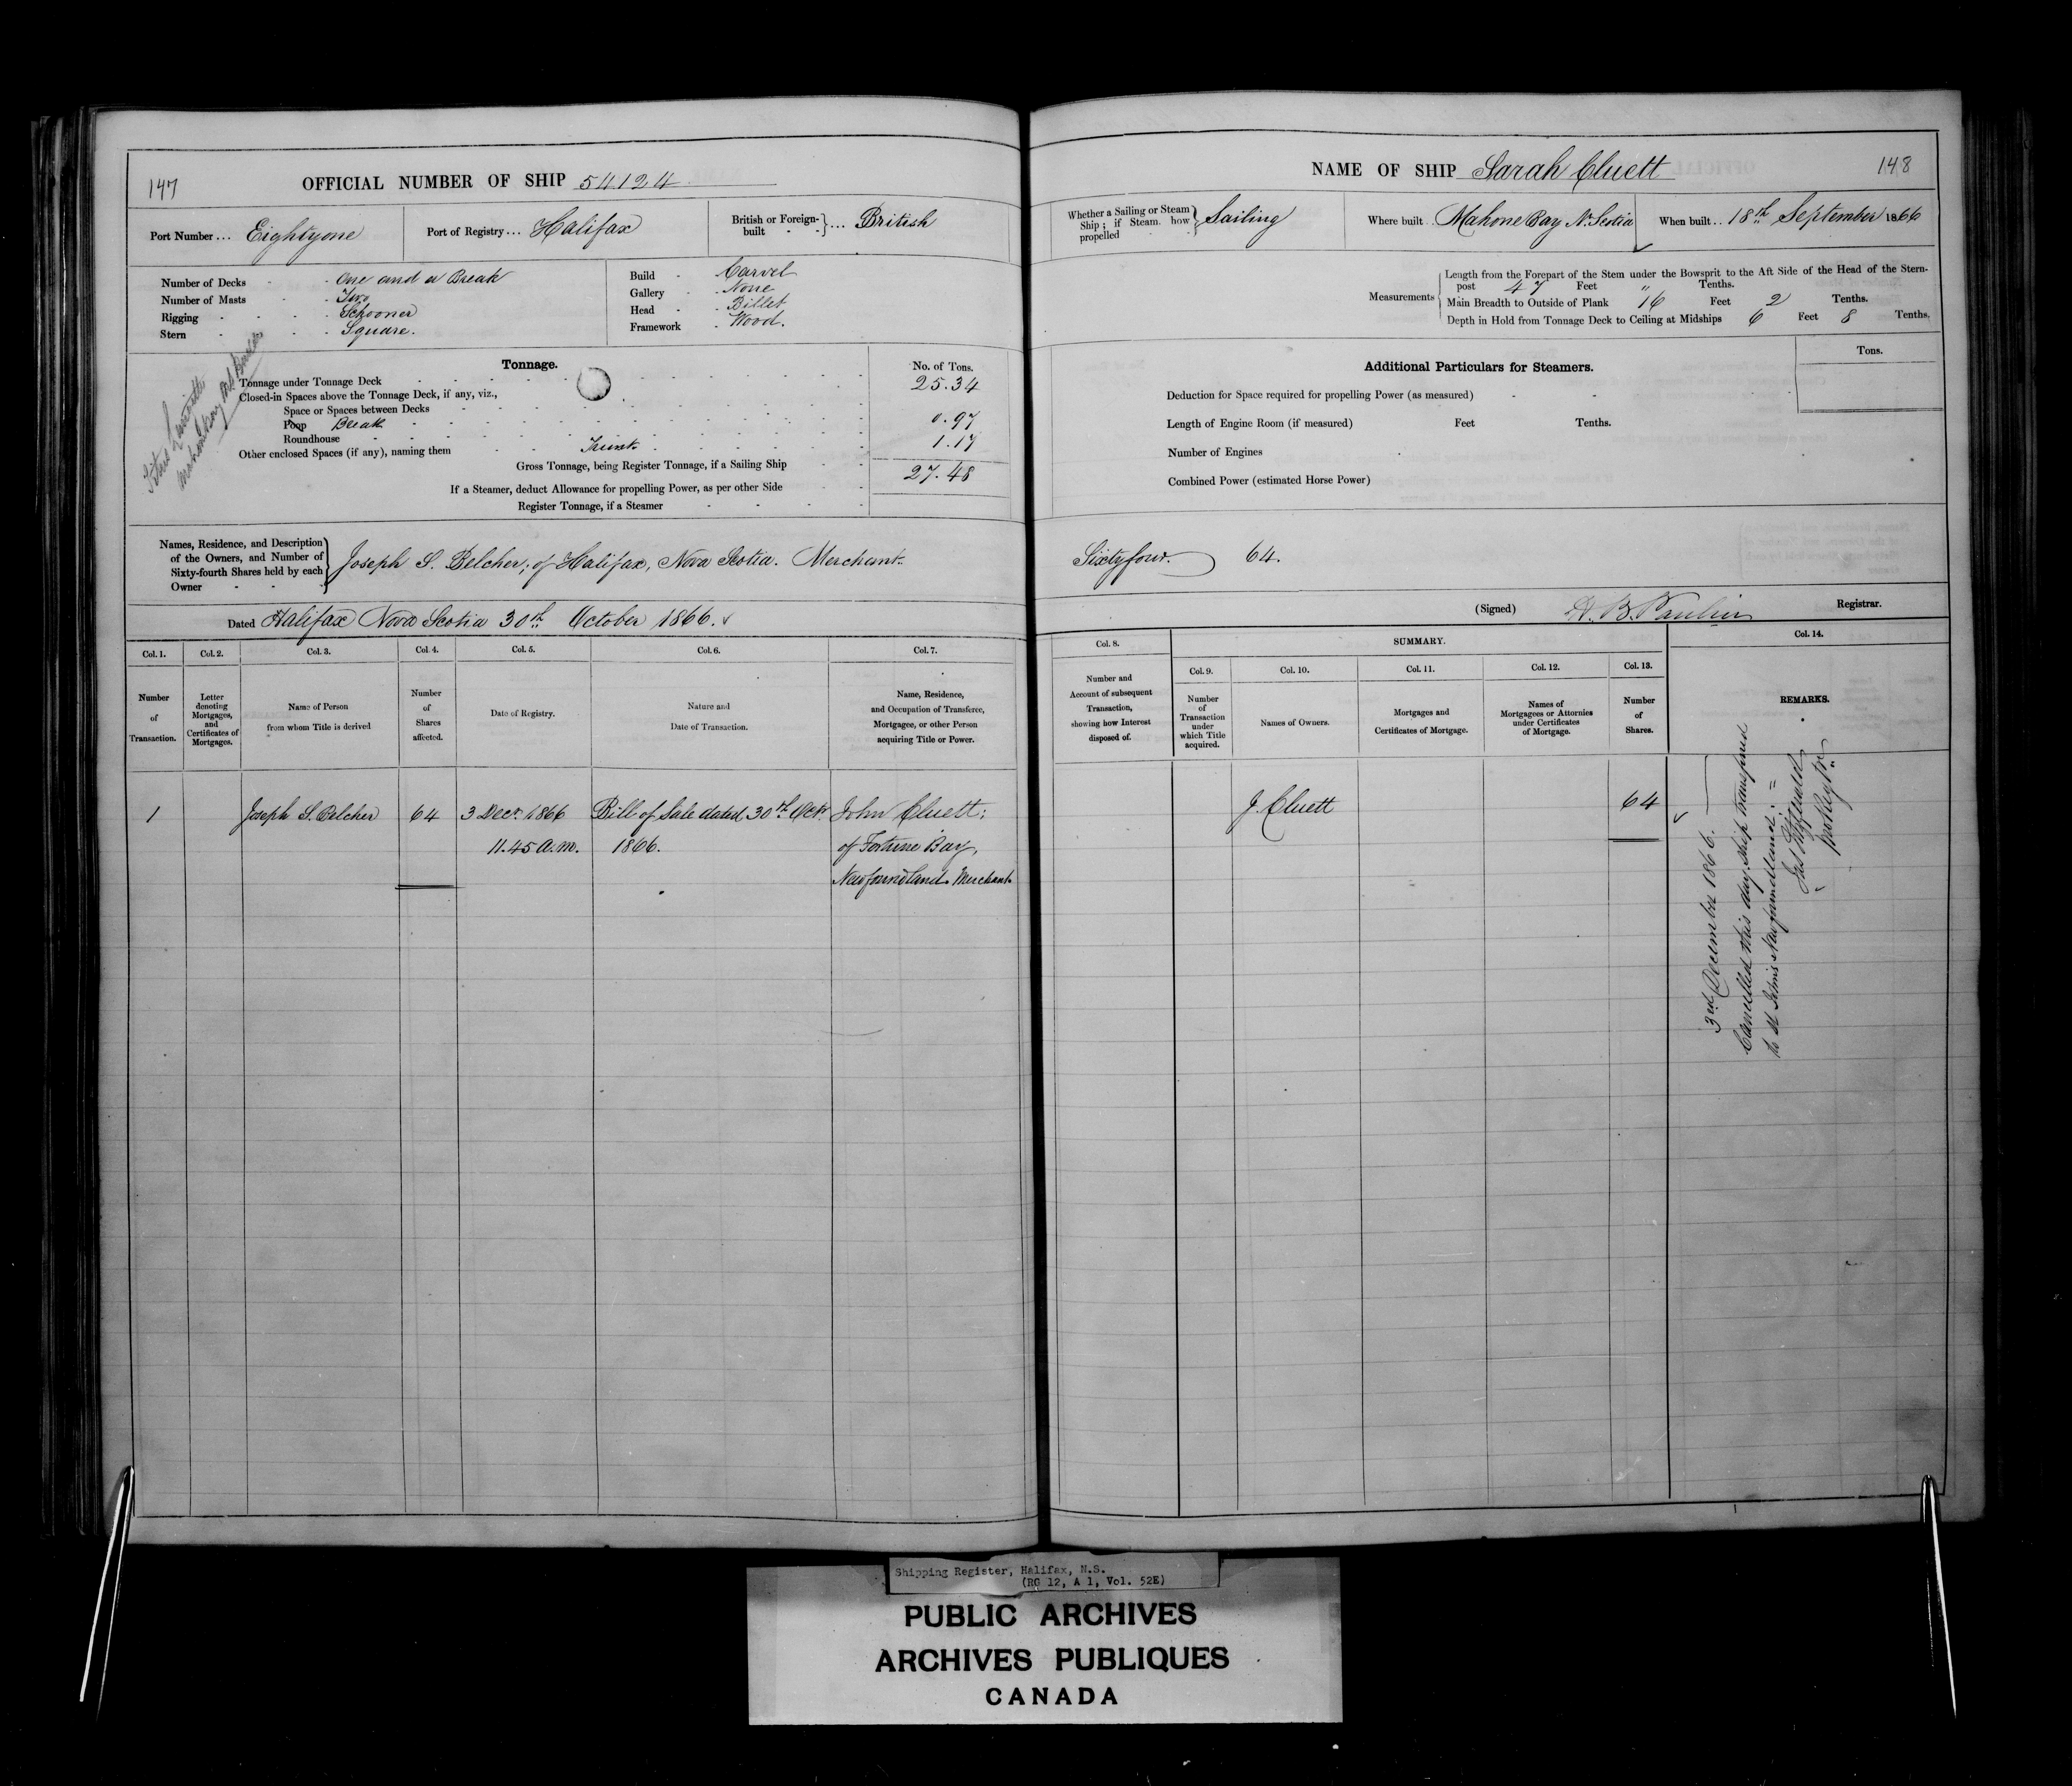 147
OFFICIAL NUMBER OF SHIP 54124
Port Number ... Eightyone
Port of Registry ... Halifax
British or Foreign-built ... British
Number of Decks - One and a Break
Number of Masts - Two
Rigging - Schooner
Stern - Square.
Build - Carvel
Gallery - None
Head - Billet
Framework - Wood.
Tonnage.
No. of Tons.
Tonnage under Tonnage Deck 25.34
Closed-in Spaces above the Tonnage Deck, if any, viz.,
Space or Spaces between Decks
Poop Break 0.97
Roundhouse
Other enclosed Spaces (if any), naming them Trunk 1.17
Gross Tonnage, being Register Tonnage, if a Sailing Ship 27.48
If a Steamer, deduct Allowance for propelling Power, as per other Side
Register Tonnage, if a Steamer
Mahone Bay
Names, Residence, and Description
of the Owners, and Number of
Sixty-fourth Shares held by each
Owner
Joseph S. Belcher; of Halifax, Nova Scotia. Merchant.
Dated Halifax Nova Scotia 30th October 1866.
Col. 1.
Number
of
Transaction.
Col. 2.
Letter
denoting
Mortgages,
and
Certificates of
Mortgages.
Col. 3.
Name of Person
from whom Title is derived
Col. 4.
Number
of
Shares
affected.
Col. 5.
Date of Registry.
Col. 6.
Nature and
Date of Transaction.
Col. 7.
Name, Residence,
and Occupation of Transferee,
Mortgagee, or other Person
acquiring Title or Power.
1 Joseph S. Belcher 64 3 Decr. 1866 Bill of Sale dated 30th Octr. John Cluett;
11.45 a.m. 1866. of Fortune Bay,
Newfoundland. Merchant
NAME OF SHIP Sarah Cluett
148
Whether a Sailing or Steam
Ship; if Steam. how
propelled
Sailing
Where built .. Mahone Bay N. Scotia
When built .. 18th September 1866
Measurements
Length from the Forepart of the Stem under the Bowsprit to the Aft Side of the Head of the Stern-
post 47 Feet " Tenths.
Main Breadth to Outside of Plank 16 Feet 2 Tenths.
Depth in Hold from Tonnage Deck to Ceiling at Midships 6 Feet 8 Tenths.
Additional Particulars for Steamers.
Tons.
Deduction for Space required for propelling Power (as measured)
Length of Engine Room (if measured) Feet Tenths.
Number of Engines
Combined Power (estimated Horse Power)
Sixtyfour. 64.
(Signed) H. B. Paulin Registrar.
Col. 8.
Number and
Account of subsequent
Transaction,
showing how Interest
disposed of.
SUMMARY.
Col. 9.
Number
of
Transaction
under
which Title
acquired.
Col. 10.
Names of Owners.
Col. 11.
Mortgages and
Certificates of Mortgage.
Col. 12.
Names of
Mortgagees or Attorneys
under Certificates
of Mortgage.
Col. 13.
Number
of
Shares.
Col. 14.
REMARKS.
J. Cluett 64
3rd December 1866.
Cancelled this day. Ship transferred
to St Johns Newfoundland. =
Shipping Register, Halifax, N.S.
(RG 12, A 1, Vol. 52E)
PUBLIC ARCHIVES
ARCHIVES PUBLIQUES
CANADA